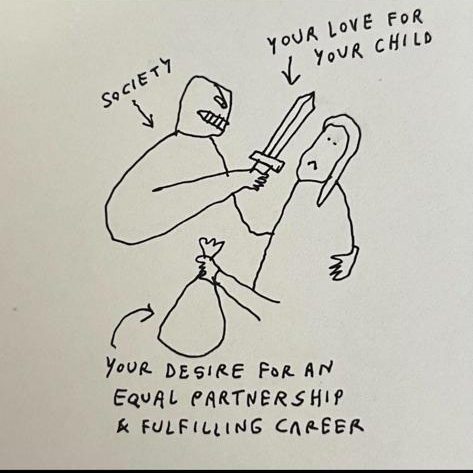 YOUR LOVE FOR
YOUR CHILD
SOCIETY
YOUR DESIRE FOR AN
EQUAL PARTNERSHIP
& FULFILLING CAREER